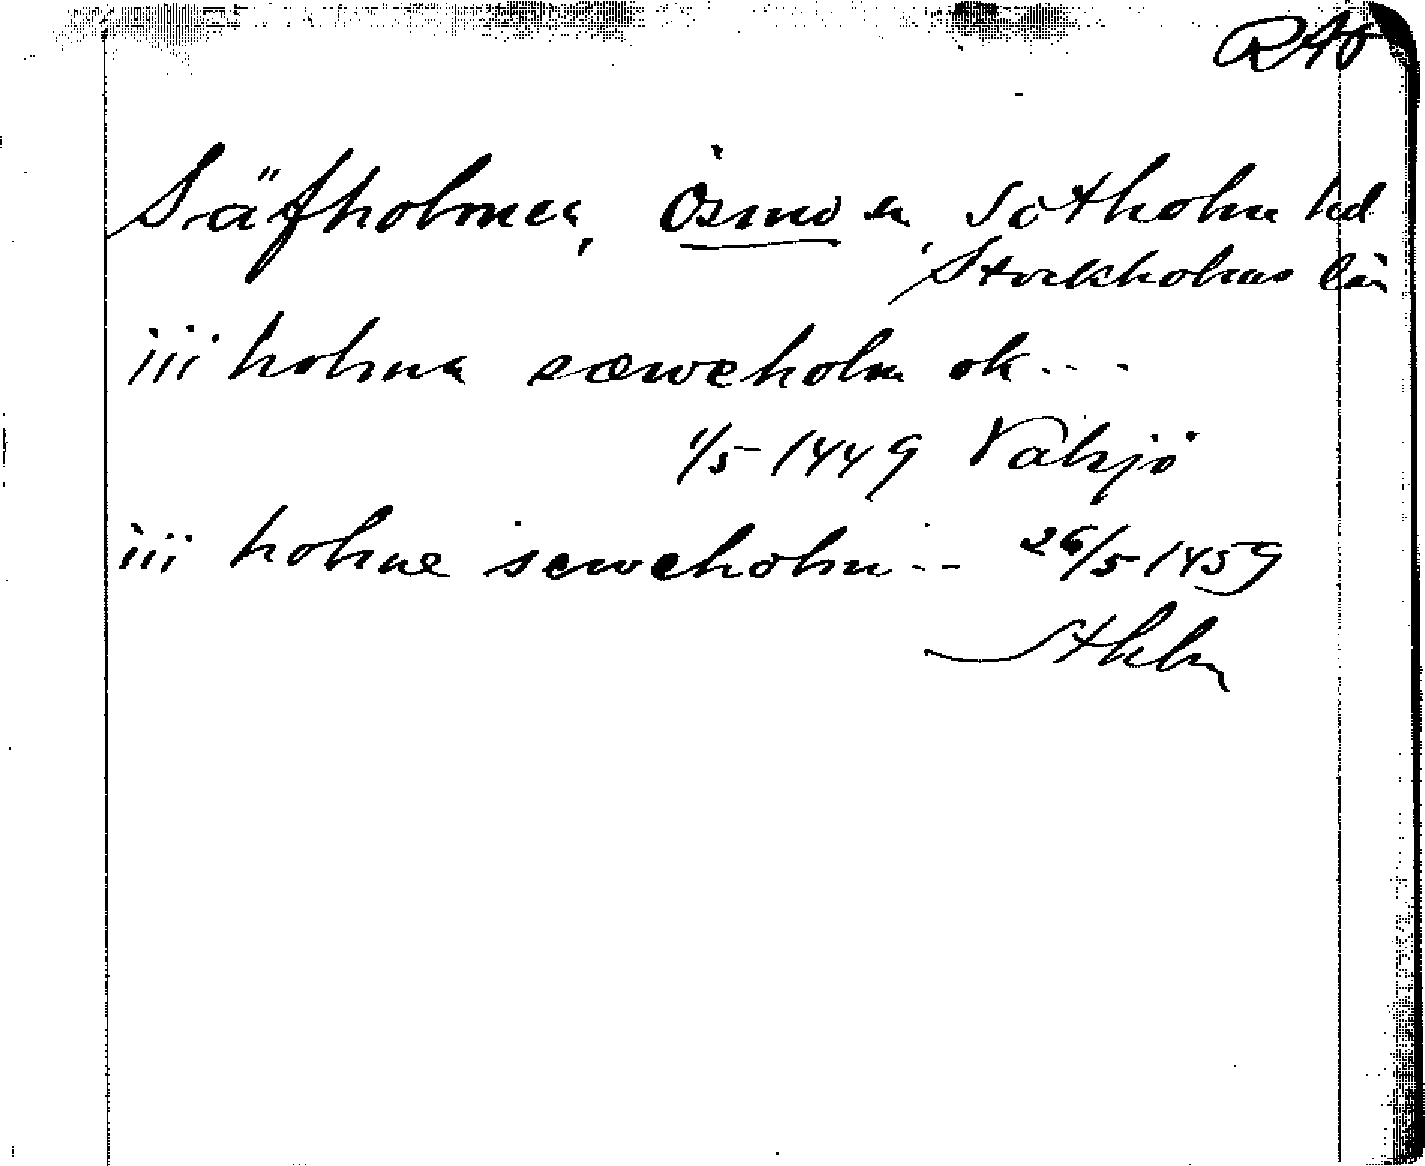 RAp
Säfholmen, Ösmo sn, Sotholm hd
Stockholms län
iii holma sæweholm ok...
1/5 1449 Växjö
iii holme seweholm -- 26/5 1459
Sthlm